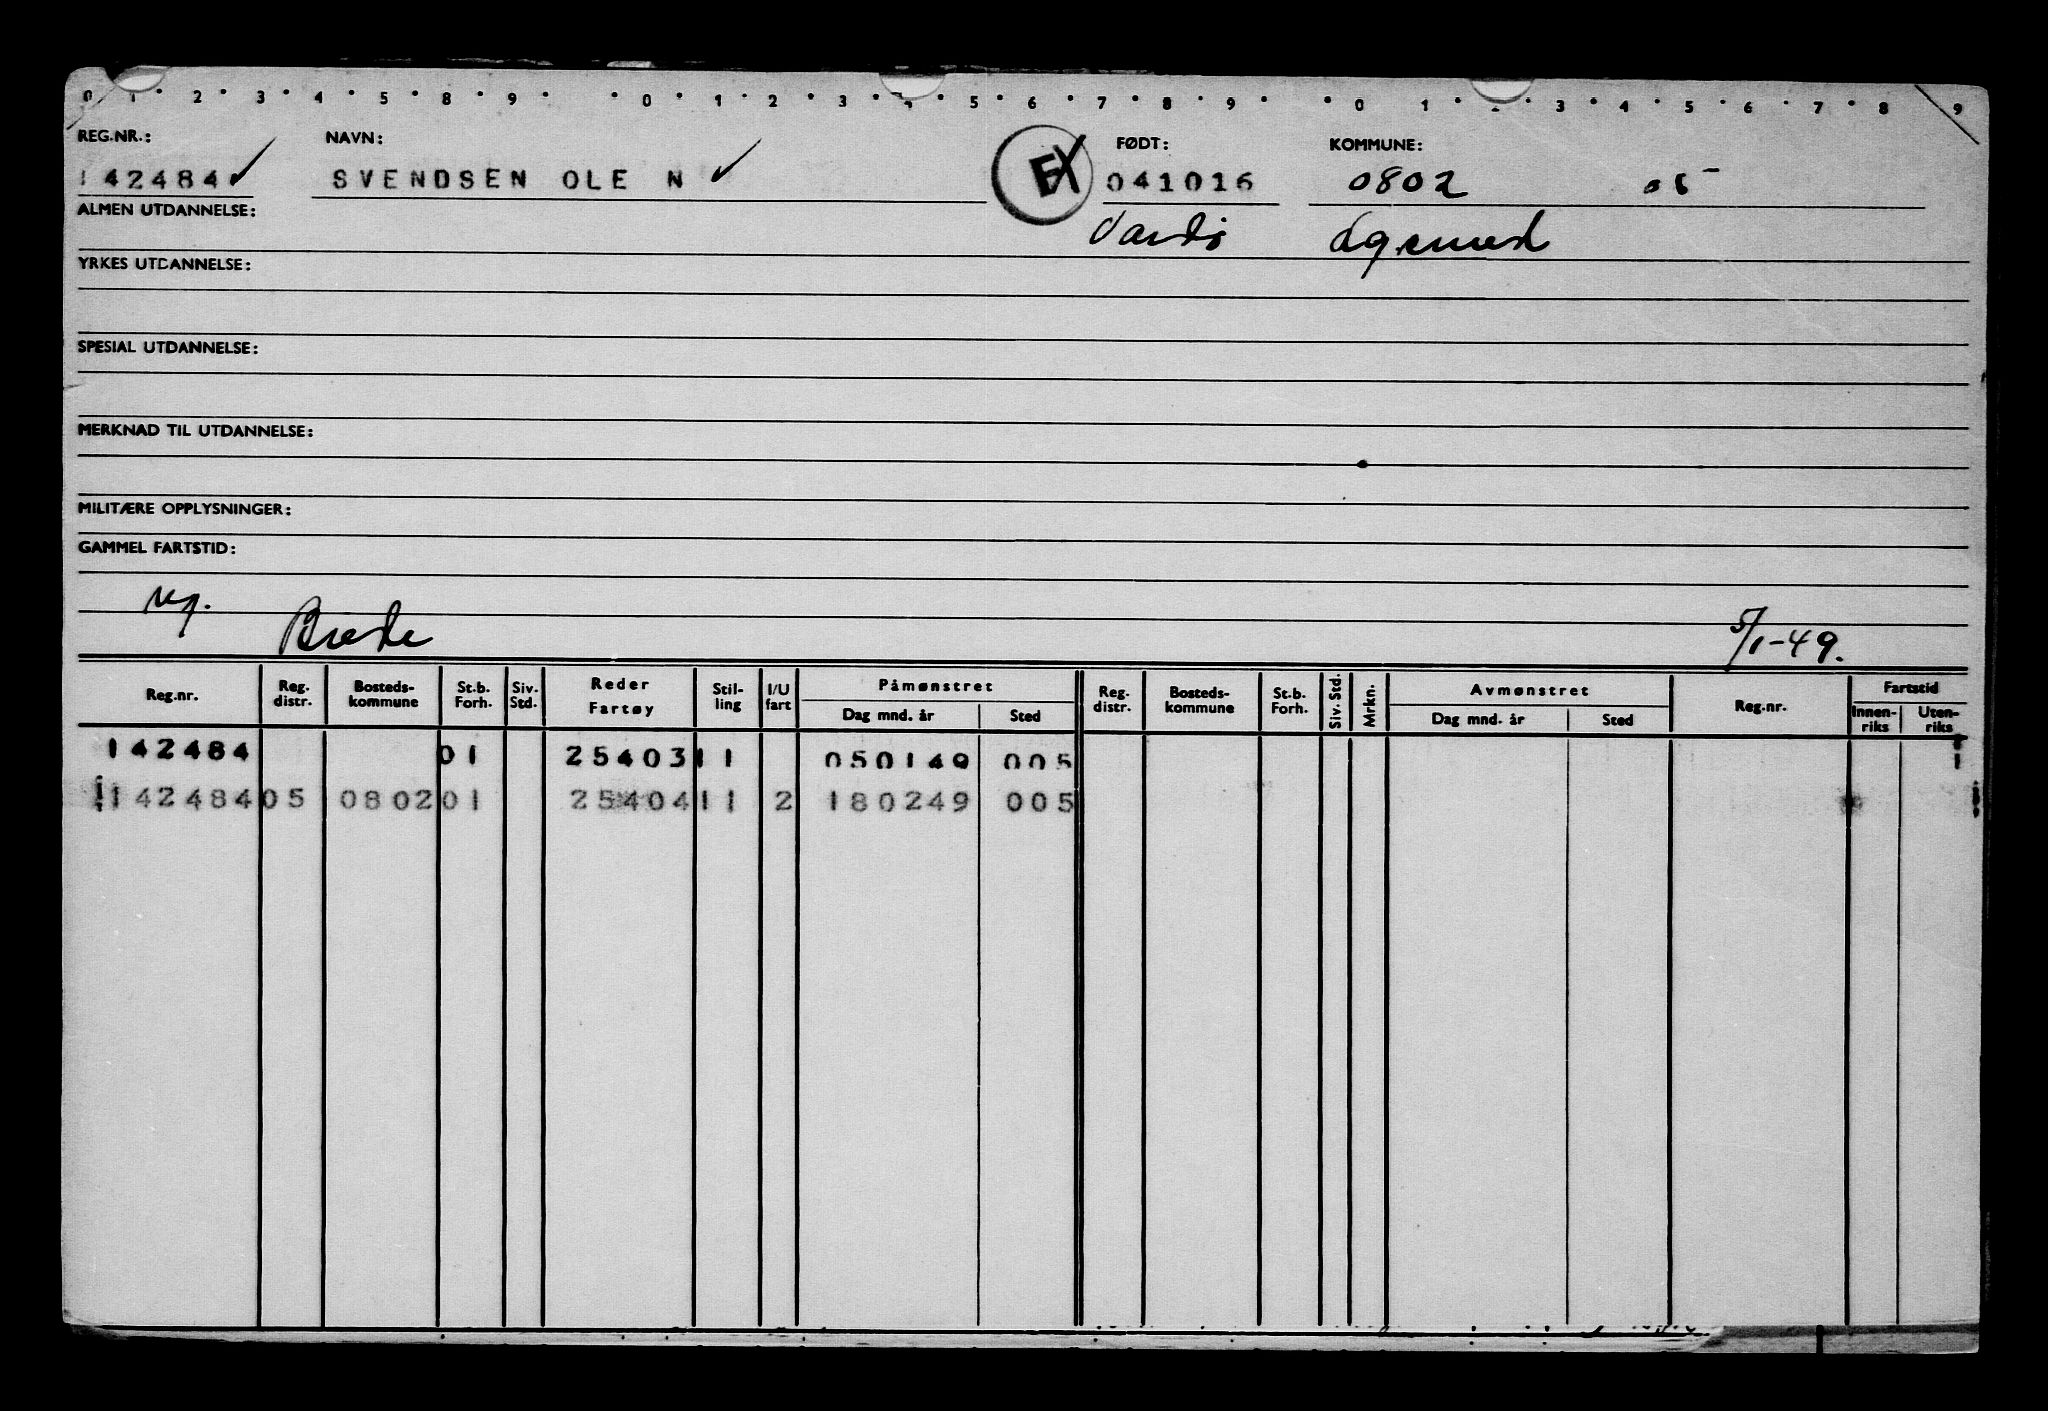 0 1 2 3 4 5 8 9 0 1 2 3 4 5 6 7 8 9 0 1 2 3 4 5 6 7 8 9
REG.NR.: NAVN: FØDT: KOMMUNE:
142484 SVENDSEN OLE N EX 041016 0802 05
ALMEN UTDANNELSE: Vardø
YRKES UTDANNELSE:
SPESIAL UTDANNELSE:
MERKNAD TIL UTDANNELSE:
MILITÆRE OPPLYSNINGER:
GAMMEL FARTSTID:
5/1-49.
Reg.nr. Reg. distr. Bosteds-kommune St.b. Forh. Siv. Std. Reder Fartøy Stil-ling I/U fart Påmønstret Dag mnd. år Sted Reg. distr. Bosteds-kommune St.b. Forh. Siv. Std. Mrkn. Avmønstret Dag mnd. år Sted Reg.nr. Fartstid Innen-riks Uten-riks
142484 01 25403 11 050149 005
142484 05 0802 01 25404 11 2 180249 005